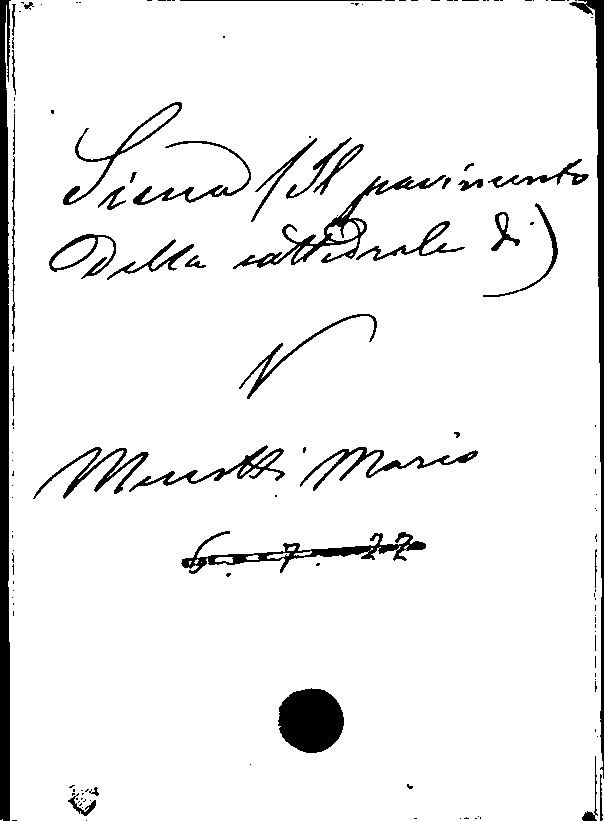 Siena (Il pavimento
della cattedrale di)
V
Menotti Mario
6. 7. 22